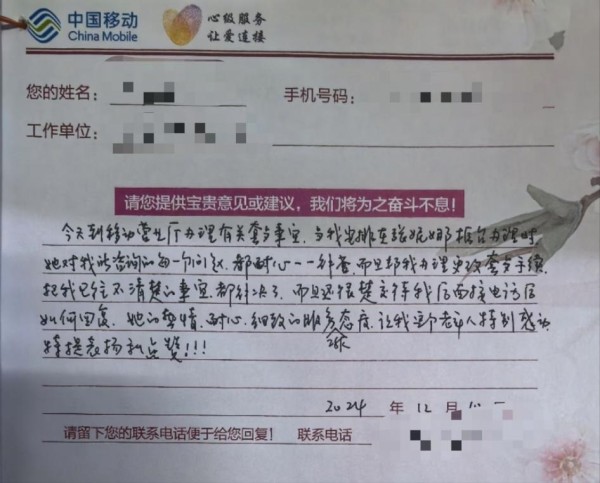 中国移动
China Mobile
心级服务
让爱连接
您的姓名：
手机号码：
工作单位：
请您提供宝贵意见或建议，我们将为之奋斗不息！
今天到移动营业厅办理有关套多事宜，当我安排在张妮娜柜台办理时，
她对我所咨询的每一个问题，都耐心一一解答，而且帮我办理更改套多手续，
把我已往不清楚的事宜，都解决了，而且还很楚交待我后面接电话后
如何回复，她的热情、耐心、细致的服务态度，让我这个老人特别感动
特提表扬和点赞！！！
2024 年 12 月
请留下您的联系电话便于给您回复！ 联系电话